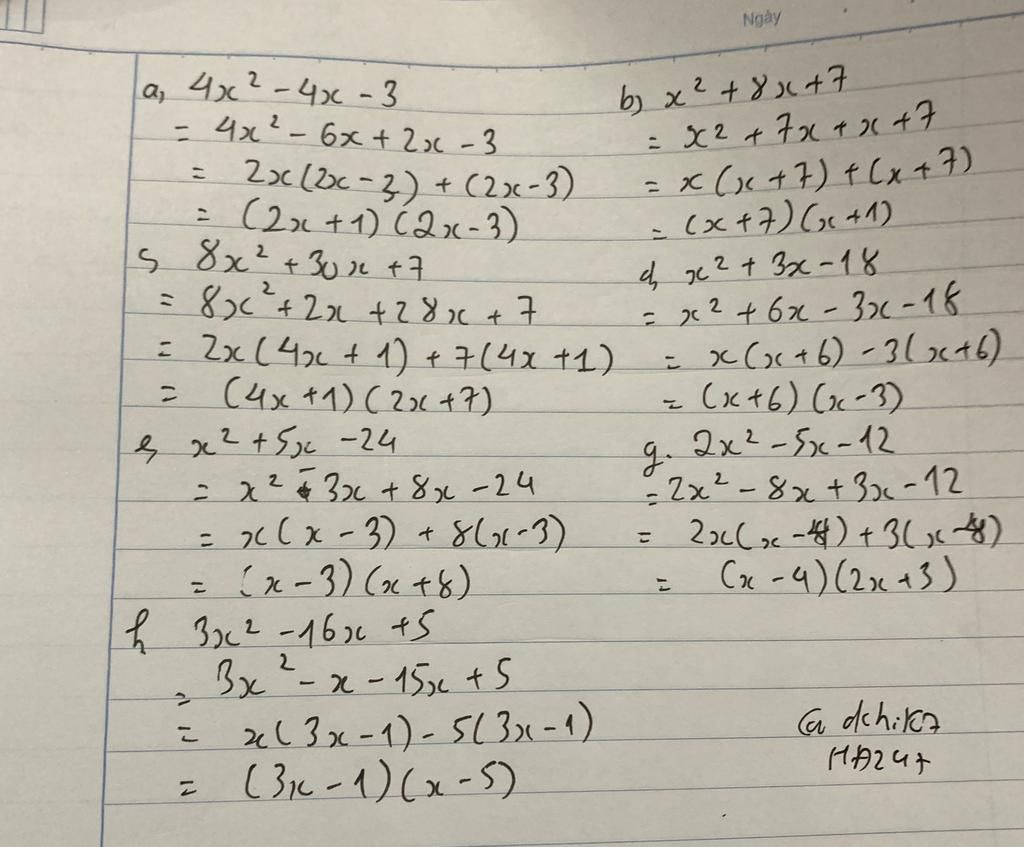 Ngày
a, 4x² - 4x - 3
= 4x² - 6x + 2x - 3
= 2x(2x - 3) + (2x - 3)
= (2x + 1)(2x - 3)
b, x² + 8x + 7
= x² + 7x + x + 7
= x(x + 7) + (x + 7)
= (x + 7)(x + 1)
c, 8x² + 30x + 7
= 8x² + 2x + 28x + 7
= 2x(4x + 1) + 7(4x + 1)
= (4x + 1)(2x + 7)
d, x² + 3x - 18
= x² + 6x - 3x - 18
= x(x + 6) - 3(x + 6)
= (x + 6)(x - 3)
e, x² + 5x - 24
= x² - 3x + 8x - 24
= x(x - 3) + 8(x - 3)
= (x - 3)(x + 8)
g. 2x² - 5x - 12
= 2x² - 8x + 3x - 12
= 2x(x - 4) + 3(x - 4)
= (x - 4)(2x + 3)
h 3x² - 16x + 5
= 3x² - x - 15x + 5
= x(3x - 1) - 5(3x - 1)
= (3x - 1)(x - 5)